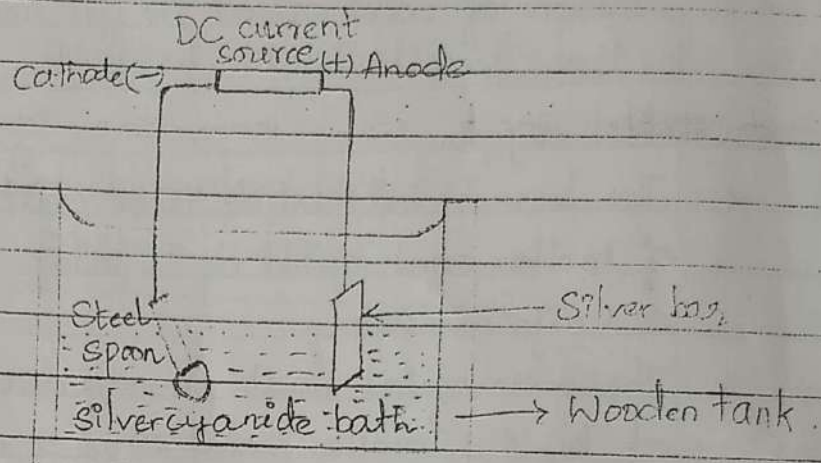 DC current
source (+) Anode
Cathode (-)
Steel
spoon
Silver
silvercyanide bath
Wooden tank